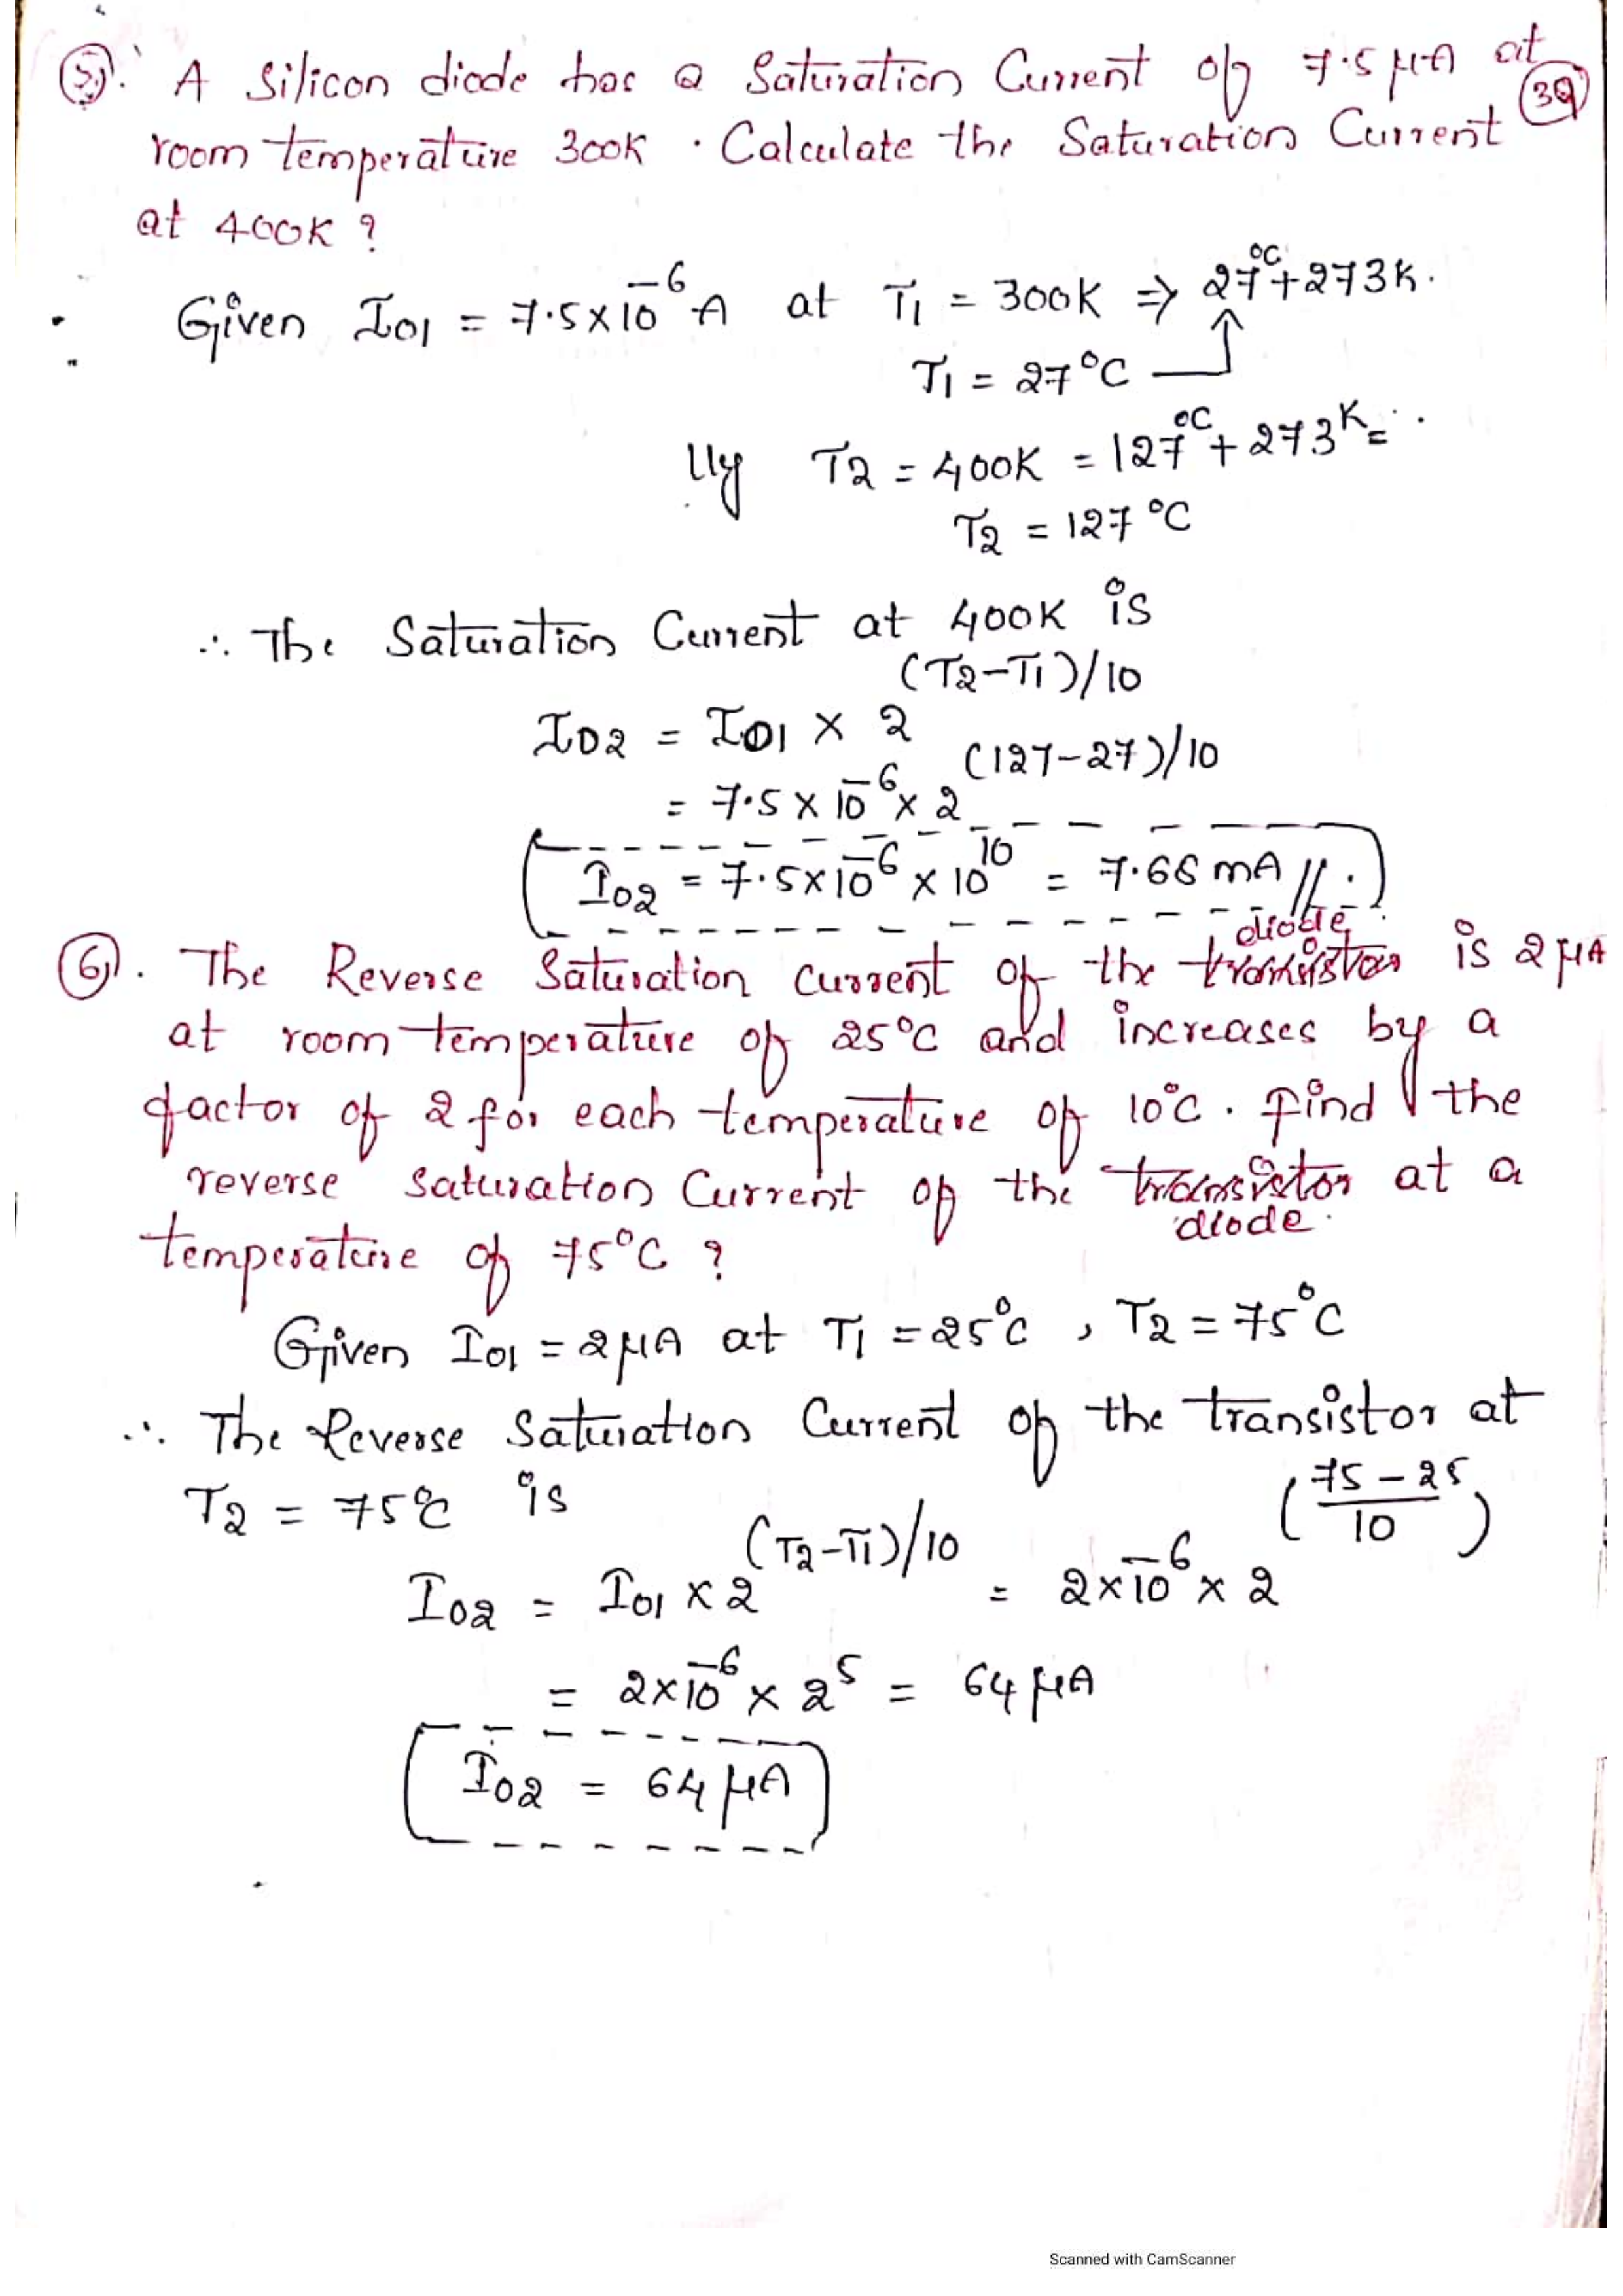 5). A silicon diode has a Saturation Current of 7.5 μA at
39
room temperature 300K. Calculate the Saturation Current
at 400K ?
Given I01 = 7.5×10⁻⁶ A at T1 = 300K ⇒ 27°C+273K.
T1 = 27°C
llly T2 = 400K = 127°C + 273K =
T2 = 127 °C
∴ The Saturation Current at 400K is
I02 = I01 × 2^(T2-T1)/10
= 7.5 × 10⁻⁶ × 2^(127-27)/10
I02 = 7.5×10⁻⁶ × 10¹⁰ = 7.68 mA //.
6). The Reverse Saturation current of the ~~transistor~~ diode is 2 μA
at room temperature of 25°C and increases by a
factor of 2 for each temperature of 10°C. Find the
reverse saturation Current of the ~~transistor~~ diode at a
temperature of 75°C ?
Given I01 = 2μA at T1 = 25°C , T2 = 75°C
∴ The Reverse Saturation Current of the transistor at
T2 = 75°C is
I02 = I01 × 2^(T2-T1)/10 = 2×10⁻⁶ × 2^((75-25)/10)
= 2×10⁻⁶ × 2⁵ = 64 μA
I02 = 64 μA
Scanned with CamScanner